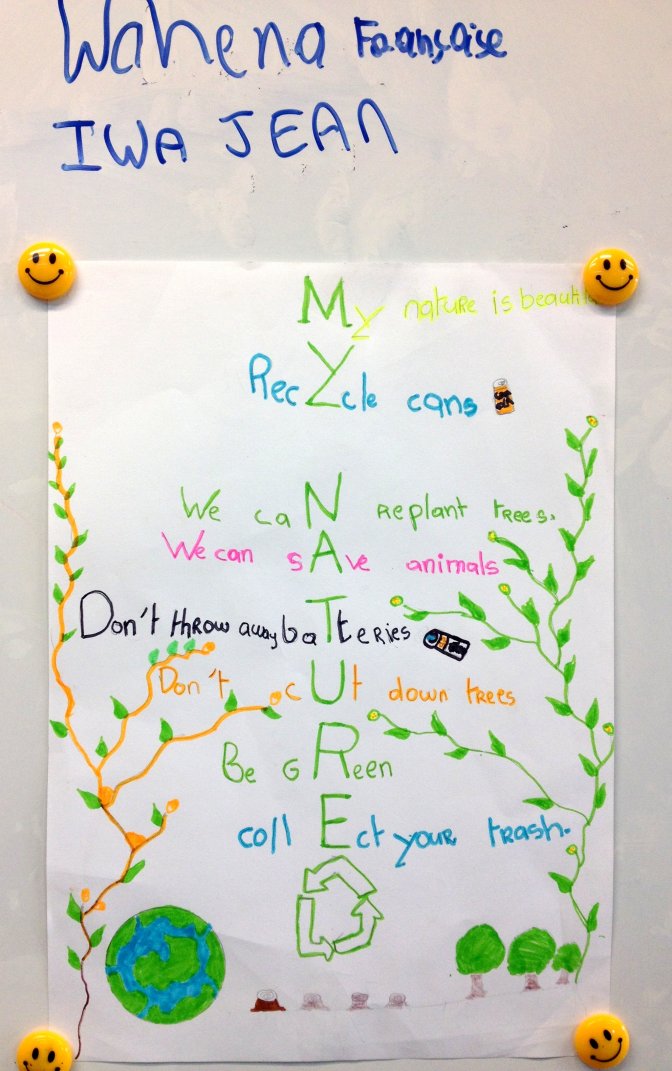 Wahena Françoise
IWA JEAN
My nature is beauti
RecYcle cans
We caN Replant trees.
We can sAve animals
Don't thRow away baTteRies
Don't cUt down trees
Be GReen
collEct your trash.